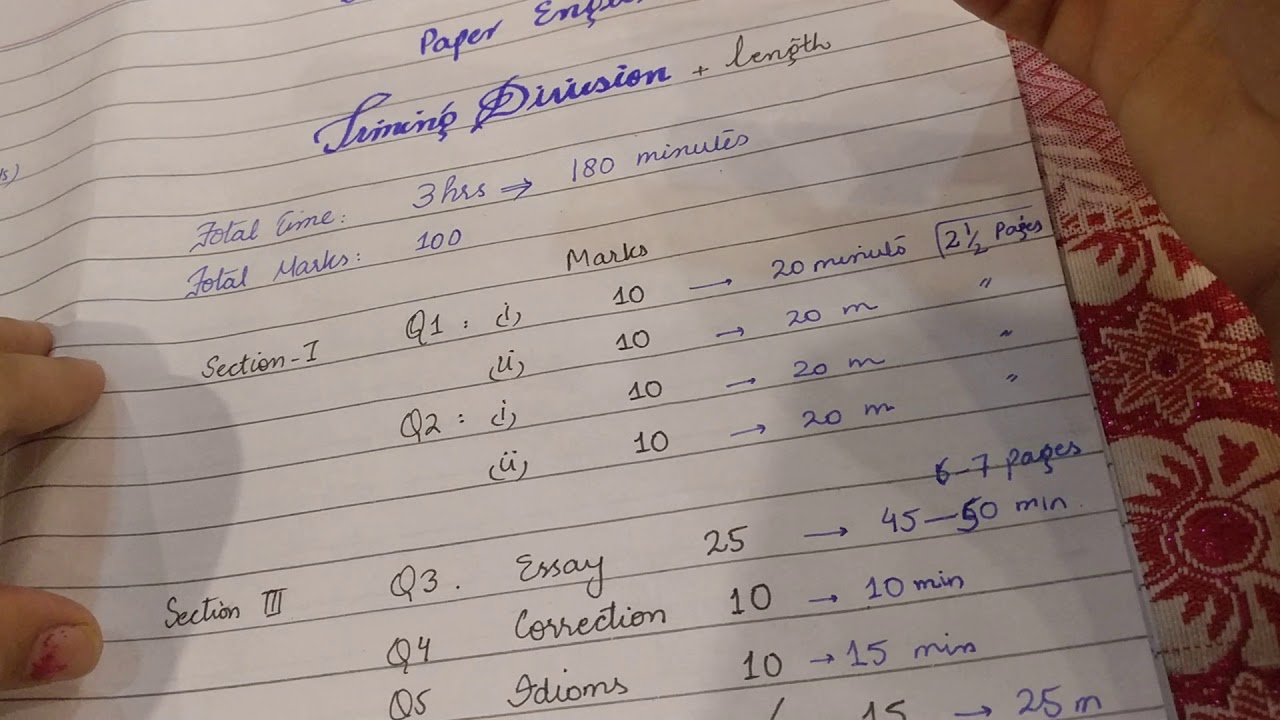 Paper
Timing Division + length
Total time: 3hrs ⇒ 180 minutes
Total Marks: 100
Marks
Section-I Q1: (i) 10 → 20 minuts 2½ Pages
(ii) 10 → 20 m "
Q2: (i) 10 → 20 m "
(ii) 10 → 20 m "
6-7 pages
Section III Q3. Essay 25 → 45-50 min.
Q4 Correction 10 → 10 min
Q5 Idioms 10 → 15 min
15 → 25 m